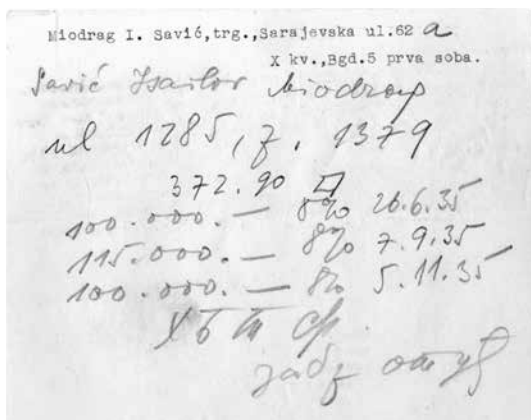 Miodrag I. Savić,trg.,Sarajevska ul.62 a
X kv.,Bgd.5 prva soba.
Savić Isailov Miodrag
ul 1285, z. 1379
372.90
100.000.— 8% 26.6.35
115.000.— 8% 7.9.35
100.000.— 8% 5.11.35